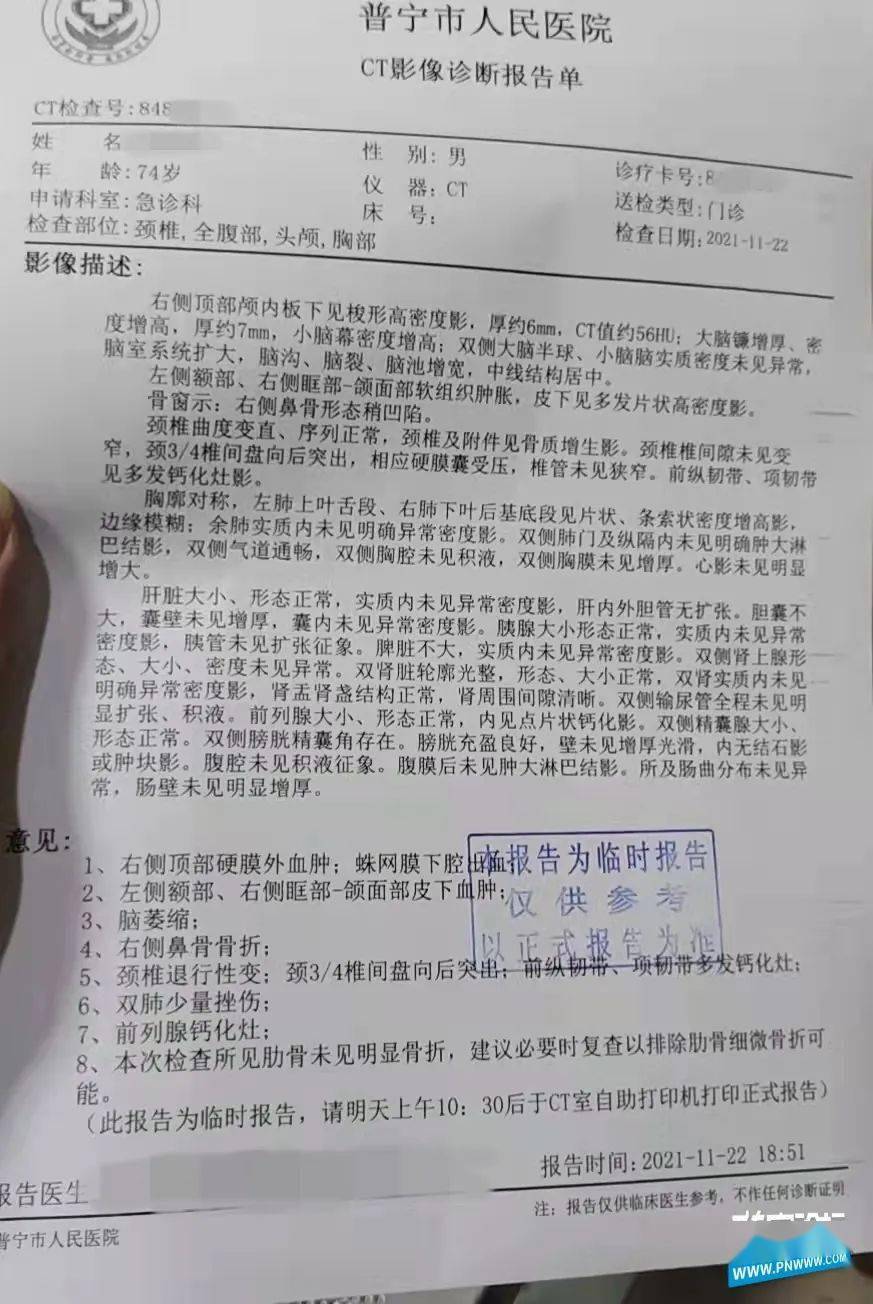 普宁市人民医院
CT影像诊断报告单
CT检查号:848
姓 名
性 别:男
诊疗卡号:8
年 龄:74岁
仪 器:CT
送检类型:门诊
申请科室:急诊科
床 号:
检查日期:2021-11-22
检查部位:颈椎,全腹部,头颅,胸部
影像描述:
右侧顶部颅内板下见梭形高密度影，厚约6mm，CT值约56HU；大脑镰增厚、密
度增高，厚约7mm，小脑幕密度增高；双侧大脑半球、小脑脑实质密度未见异常，
脑室系统扩大，脑沟、脑裂、脑池增宽，中线结构居中。
左侧额部、右侧眶部-颌面部软组织肿胀，皮下见多发片状高密度影。
骨窗示：右侧鼻骨形态稍凹陷。
颈椎曲度变直、序列正常，颈椎及附件见骨质增生影。颈椎椎间隙未见变
窄，颈3/4椎间盘向后突出，相应硬膜囊受压，椎管未见狭窄。前纵韧带、项韧带
见多发钙化灶影。
胸廓对称，左肺上叶舌段、右肺下叶后基底段见片状、条索状密度增高影，
边缘模糊；余肺实质内未见明确异常密度影。双侧肺门及纵隔内未见明确肿大淋
巴结影，双侧气道通畅，双侧胸腔未见积液，双侧胸膜未见增厚。心影未见明显
增大。
肝脏大小、形态正常，实质内未见异常密度影，肝内外胆管无扩张。胆囊不
大，囊壁未见增厚，囊内未见异常密度影。胰腺大小形态正常，实质内未见异常
密度影，胰管未见扩张征象。脾脏不大，实质内未见异常密度影。双侧肾上腺形
态、大小、密度未见异常。双肾脏轮廓光整，形态、大小正常，双肾实质内未见
明确异常密度影，肾盂肾盏结构正常，肾周围间隙清晰。双侧输尿管全程未见明
显扩张、积液。前列腺大小、形态正常，内见点片状钙化影。双侧精囊腺大小、
形态正常。双侧膀胱精囊角存在。膀胱充盈良好，壁未见增厚光滑，内无结石影
或肿块影。腹腔未见积液征象。腹膜后未见肿大淋巴结影。所及肠曲分布未见异
常，肠壁未见明显增厚。
意见:
1、右侧顶部硬膜外血肿；蛛网膜下腔出血；
2、左侧额部、右侧眶部-颌面部皮下血肿；
3、脑萎缩；
4、右侧鼻骨骨折；
5、颈椎退行性变；颈3/4椎间盘向后突出；前纵韧带、项韧带多发钙化灶；
6、双肺少量挫伤；
7、前列腺钙化灶；
8、本次检查所见肋骨未见明显骨折，建议必要时复查以排除肋骨细微骨折可
能。
（此报告为临时报告，请明天上午10：30后于CT室自助打印机打印正式报告）
本报告为临时报告
仅供参考
以正式报告为准
报告时间:2021-11-22 18:51
报告医生
注：报告仅供临床医生参考，不作任何诊断证明
普宁市人民医院
WWW.PNWWW.COM